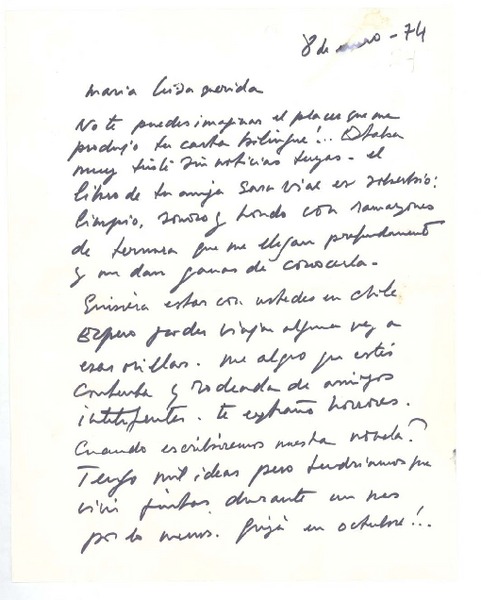 8 de enero - 74
Maria Luisa querida
No te puedes imaginar el placer que me
produjo tu carta bilingüe!.. Estaba
muy triste sin noticias tuyas - el
libro de tu amiga Sara Vial es soberbio:
limpio, sonoro y hondo con ramazones
de ternura que me llegan profundamente
y me dan ganas de conocerla -
Quisiera estar con ustedes en Chile
Espero poder viajar alguna vez a
esas orillas. Me alegro que estés
contenta y rodeada de amigos
inteligentes. te extraño horrores.
Cuando escribiremos nuestra novela?
Tengo mil ideas pero tendriamos que
vivir juntas durante un mes
por lo menos. Quizá en octubre!..